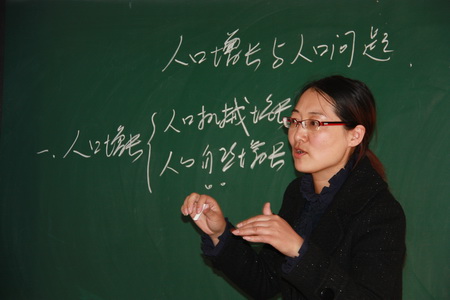 人口增长与人口问题.
一、人口增长
人口机械增长
人口自然增长